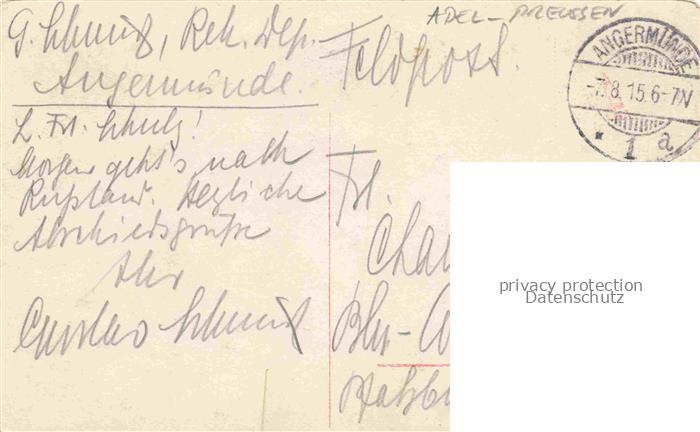 ADEL - PREUSSEN
G. Schmidt, Rek. Dep.
Angermünde.
Feldpost.
ANGERMÜNDE
-7.8.15.6-7N
* 1 a
L. Frl. Schulz!
Morgen geht's nach
Rußland. Herzliche
Abschiedsgrüße
Ihr
Gustav Schmidt
Frl.
Cha
Bln-
privacy protection
Datenschutz